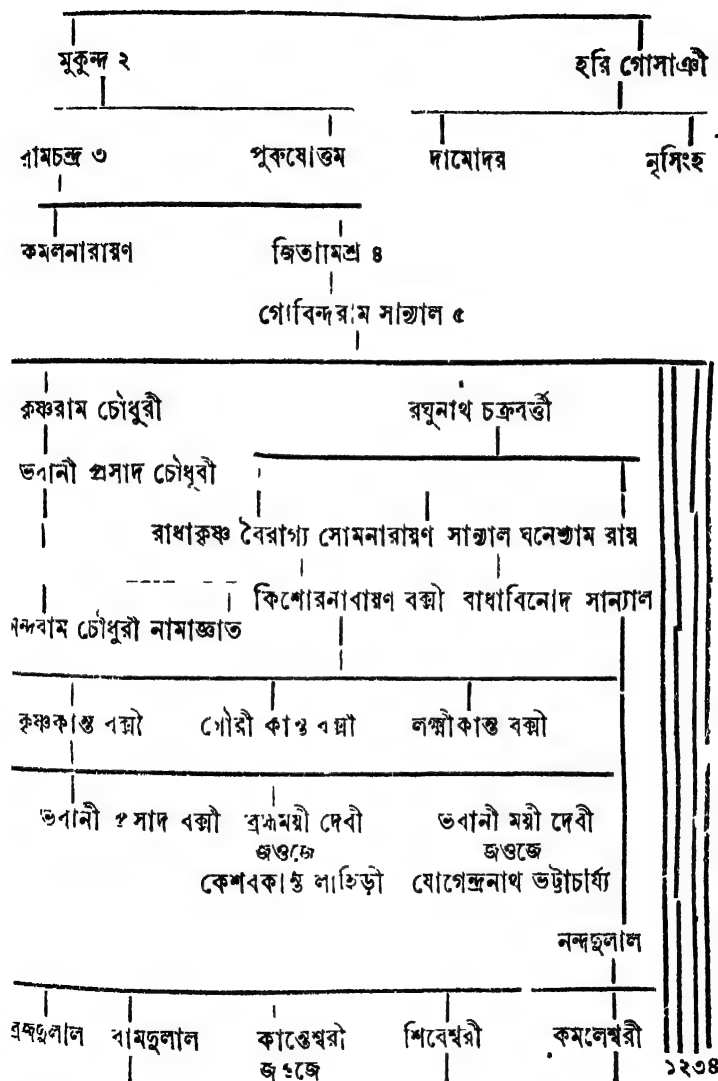 মুকুন্দ ২ হরি গোসাঞী
রামচন্দ্র ৩ পুরুষোত্তম দামোদর নৃসিংহ
কমলনারায়ণ জিতামিশ্র ৪
গোবিন্দরাম সান্যাল ৫
কৃষ্ণরাম চৌধুরী রঘুনাথ চক্রবর্ত্তী
ভবানী প্রসাদ চৌধুবী
রাধাকৃষ্ণ বৈরাগ্য সোমনারায়ণ সান্যাল ঘনেশ্যাম রায়
কিশোরনাবায়ণ বক্সী বাধাবিনোদ সান্যাল
নন্দবাম চৌধুরী নামাজ্ঞাত
কৃষ্ণকান্ত বক্সী গৌরী কান্ত বক্সী লক্ষ্মীকান্ত বক্সী
ভবানী প্রসাদ বক্সী ব্রহ্মময়ী দেবী ভবানী ময়ী দেবী
জওজে জওজে
কেশবকান্ত লাহিড়ী যোগেন্দ্রনাথ ভট্টাচার্য্য
নন্দদুলাল
ব্রজদুলাল বামদুলাল কান্তেশ্বরী শিবেশ্বরী কমলেশ্বরী
জওজে ১২৩৪